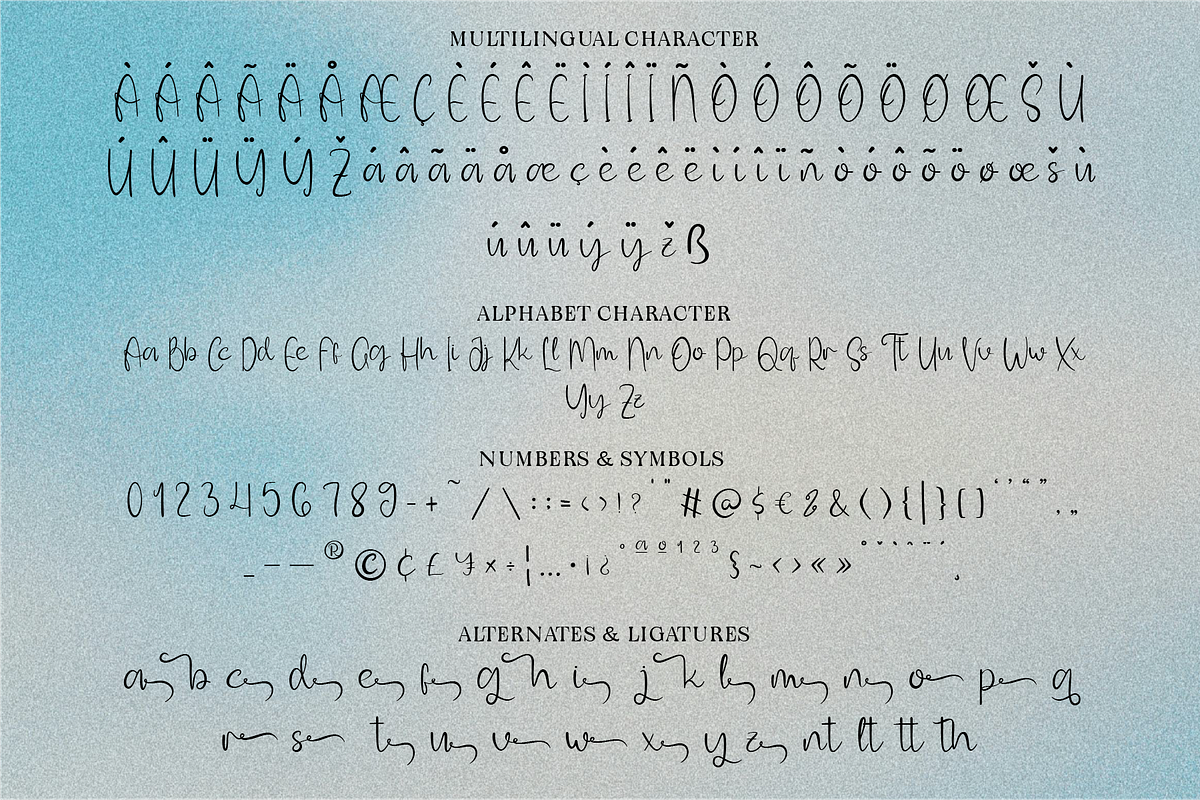 MULTILINGUAL CHARACTER
À Á Â Ã Ä Å Æ Ç È É Ê Ë Ì Í Î Ï Ñ Ò Ó Ô Õ Ö Ø Œ Š Ù
Ú Û Ü Ÿ Ý Ž á â ã ä å æ ç è é ê ë ì í î ï ñ ò ó ô õ ö ø œ š ù
ú û ü ý ÿ ž ß
ALPHABET CHARACTER
Aa Bb Cc Dd Ee Ff Gg Hh Ii Jj Kk Ll Mm Nn Oo Pp Qq Rr Ss Tt Uu Vv Ww Xx
Yy Zz
NUMBERS & SYMBOLS
0 1 2 3 4 5 6 7 8 9 - + ~ / \ : ; = < > ! ? ' " # @ $ € & ( ) { | } [ ] ‘ ’ “ ” , „
_ – — ® © ¢ £ ¥ × ÷ ¦ … • ¡ ¿ ° ª º 1 2 3 § ~ ‹ › « » ° ˇ ` ^ ¨ ´ ¸
ALTERNATES & LIGATURES
a b c d e f g h i j k l m n o p q
r s t u v w x y z nt lt tt th